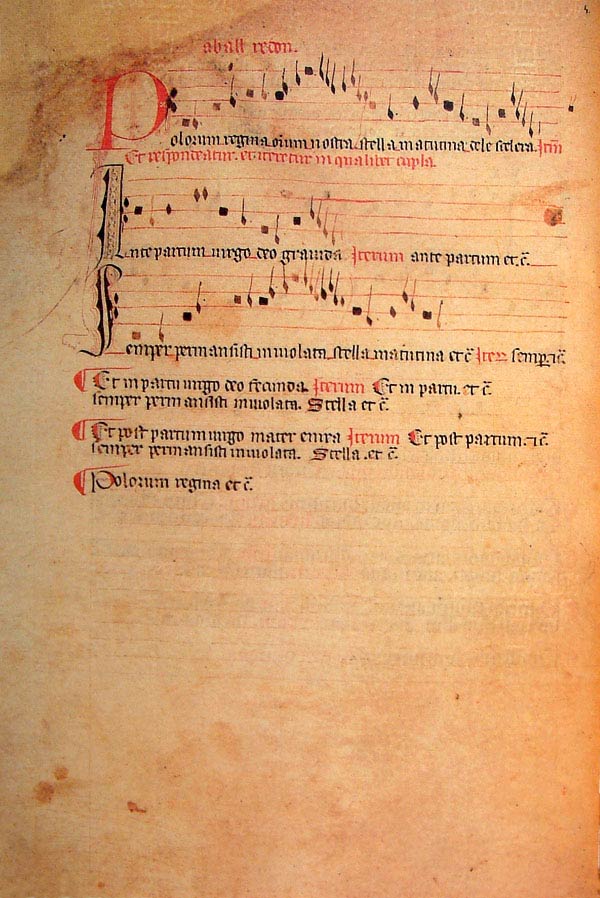 a ball redon.
Polorum regina oium nostra. stella matutina dele scelera. Itm
Et respondeatur. et iteretur in qualibet cupla.
Ante partum uirgo deo grauida Iterum ante partum et c̄.
Semper permansisti inuiolata. stella matutina et c̄ Iter semper ⁊ c̄.
Et in partu uirgo deo fecunda. Iterum Et in partu. et c̄
semper permansisti inuiolata. Stella et c̄.
Et post partum uirgo mater enixa Iterum Et post partum. ⁊ c̄.
semper permansisti inuiolata. Stella. et c̄.
Polorum regina et c̄.